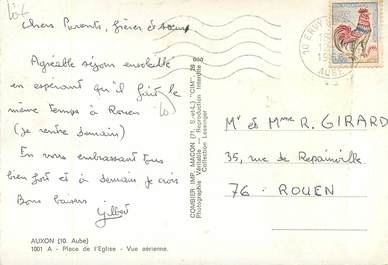 lot
Chers Parents, frères et sœurs
Agréable séjour ensoleillé
en espérant qu'il fait le
même temps à Rouen
(je rentre demain)
En vous embrassant tous
bien fort et à demain je crois
Bons baisers
Gilbert
AUXON (10. Aube)
1001 A - Place de l'Eglise - Vue aérienne.
COMBIER IMP. MACON (71. S.-et-L.) "CIM"
Photographie Véritable - Reproduction Interdite
Collection Lessenger
10 ERVY
AUBE
Mr et Mme R. GIRARD
35, rue de Repainville
76 - ROUEN